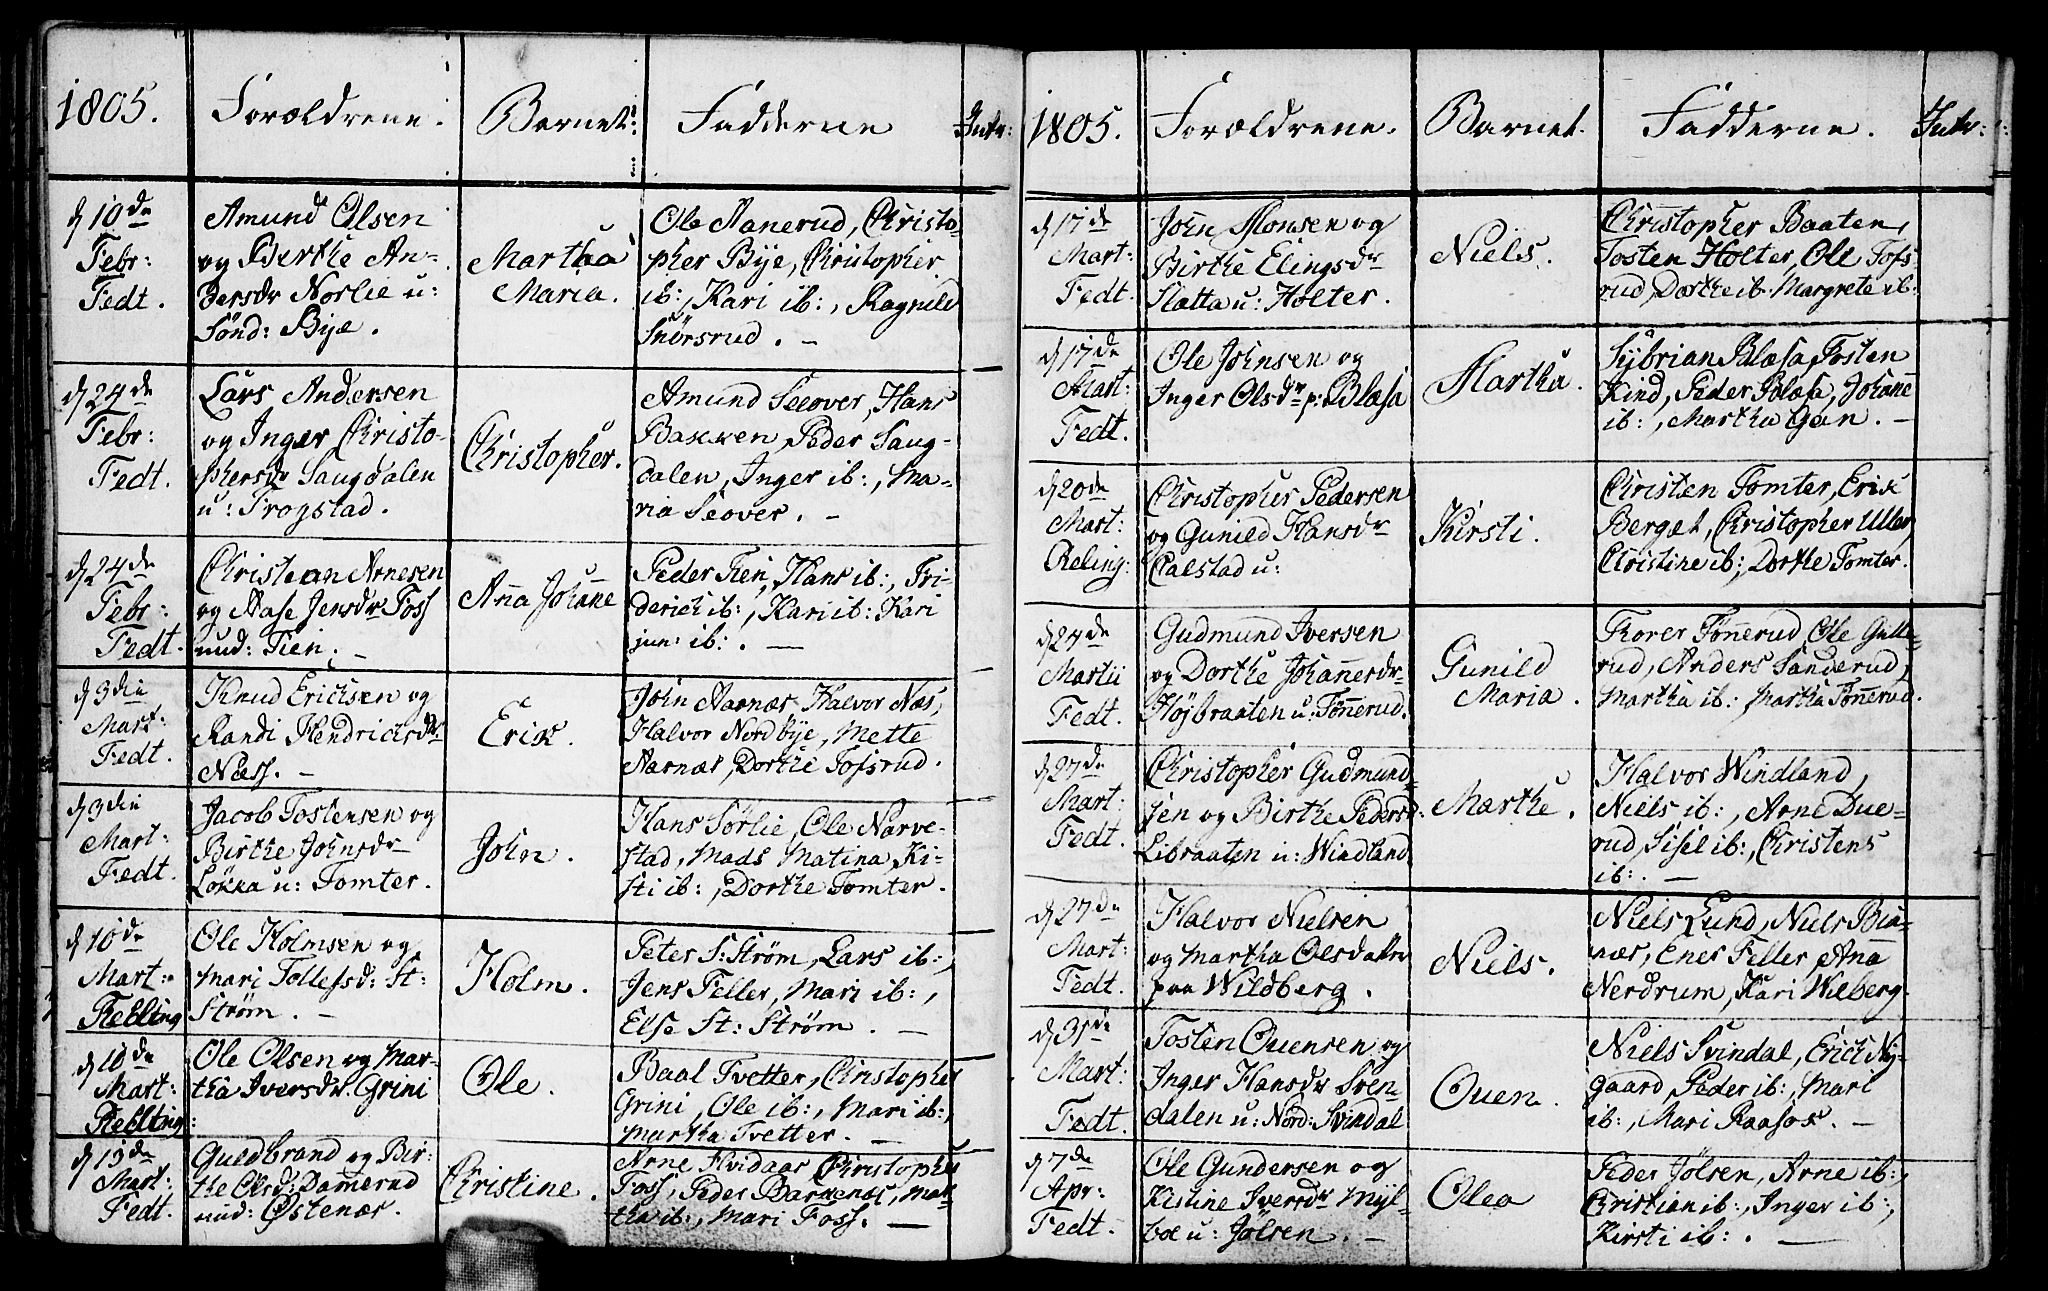 1805.
Forældrene.
Barnet:
Fadderne
Intr:
d 10de
Febr:
Fedt.
Amund Olsen
og Berthe An-
dersdr Norlie u:
Sönd: Bye.
Martha
Maria.
Ole Aanerud, Christo-
pher Bye, Christopher
ib:, Kari ib:, Ragnild
Snörsrud. -
d 24de
Febr:
Fedt.
Lars Andersen
og Inger Christo-
phersdr Saugdalen
u: Frogstad.
Christopher.
Amund Seover, Hans
Bakken, Peder Saug-
dalen, Inger ib:, Ma-
ria Seover. -
d 24de
Febr:
Fedt.
Christean Arnesen
og Aase Jensdr Foss
und: Tien. -
Ana Johane
Peder Tien, Hans ib:, Fri-
derich ib:, Kari ib: Kari
jun: ib:. -
d 3die
Mart:
Fedt.
Knud Ericksen og
Randi Hendricksdr
Næss. -
Erik.
John Aarnæs, Halvor Næs,
Halvor Nordbye, Mette
Aarnæs, Dorthe Tofsrud.
d 3die
Mart:
Fedt.
Jacob Tostensen og
Birthe Johnsdr
Løkka u: Tomter.
John.
Hans Sörlie, Ole Narve-
stad, Mads Matina, Ki-
sti ib:, Dorthe Tomter.
d 10de
Mart:
Reeling
Ole Holmsen og
Mari Tollefsd: St:
Strøm. -
Holm.
Peter S: Strøm, Lars ib:,
Jens Feller, Mari ib:,
Else St: Strøm. -
d 10de
Mart:
Reeling:
Ole Olsen og Mar-
tha Iversdr. Grini
Ole.
Baal Tvetter, Christopher
Grini, Ole ib:, Mari ib:,
Martha Tvetter. -
d 13de
Mart:
Fedt.
Guldbrand og Bir-
the Olsd: Damerud
und: Østenær.
Christine.
Arne Hvidaas, Christopher
Foss, Peder Barkenæs, Mar-
tha ib:, Mari Foss. -
1805.
Forældrene.
Barnet.
Fadderne.
Intr:
d 17de
Mart:
Fedt.
John Monsen og
Birthe Elingsdr
Slatta u: Holter.
Niels.
Christopher Baaten,
Tosten Holter, Ole Tofs
rud, Dorthe ib. Margrete ib:
d 17de
Mart:
Fedt.
Ole Johnsen og
Inger Olsdr p: Blæsa
Martha.
Sybrian Blæsa, Tosten
Kind, Peder Blæsa, Johane
ib:, Martha Gan. -
d 20de
Mart:
Reling:
Christopher Pedersen
og Gunild Hansdr
Calstad u:
Kirsti.
Christen Tomter, Erik
Berget, Christopher Uller,
Christine ib:, Dorthe Tomter.
d 24de
Martii
Fedt.
Gudmund Iversen
og Dorthe Johanesdr
Højbraaten u: Tönerud.
Gunild
Maria.
Torer Tönerud, Ole Gulle-
rud, Anders Sanderud,
Martha ib: Martha Tönerud.
d 27de
Mart:
Fedt.
Christopher Gudmund
sen og Birthe Pedersd:
Libraaten u: Windland
Marthe.
Halvor Windland,
Niels ib:, Arne Due-
rud, Sisel ib:, Christens
ib:. -
d 27de
Mart:
Fedt.
Halvor Nielsen
og Martha Olsdatter
paa Wildberg.
Niels.
Niels Lund, Niels Bu-
nær, Enes Feller, Ana
Nerdrum, Kari Wilberg.
d 31de
Mart:
Fedt.
Tosten Ouensen og
Inger Hansdr Sven
dalen u: Nord: Svindal
Ouen.
Niels Svindal, Erich Ny-
gaard, Peder ib:, Mari
ib:, Mari Raasos. -
d 7de
Apr:
Fedt.
Ole Gundersen og
Kistine Iversdr Myl-
boe u: Jölsen. -
Olea
Peder Jölsen, Arne ib:,
Christian ib:, Inger ib:,
Kirsti ib:. -